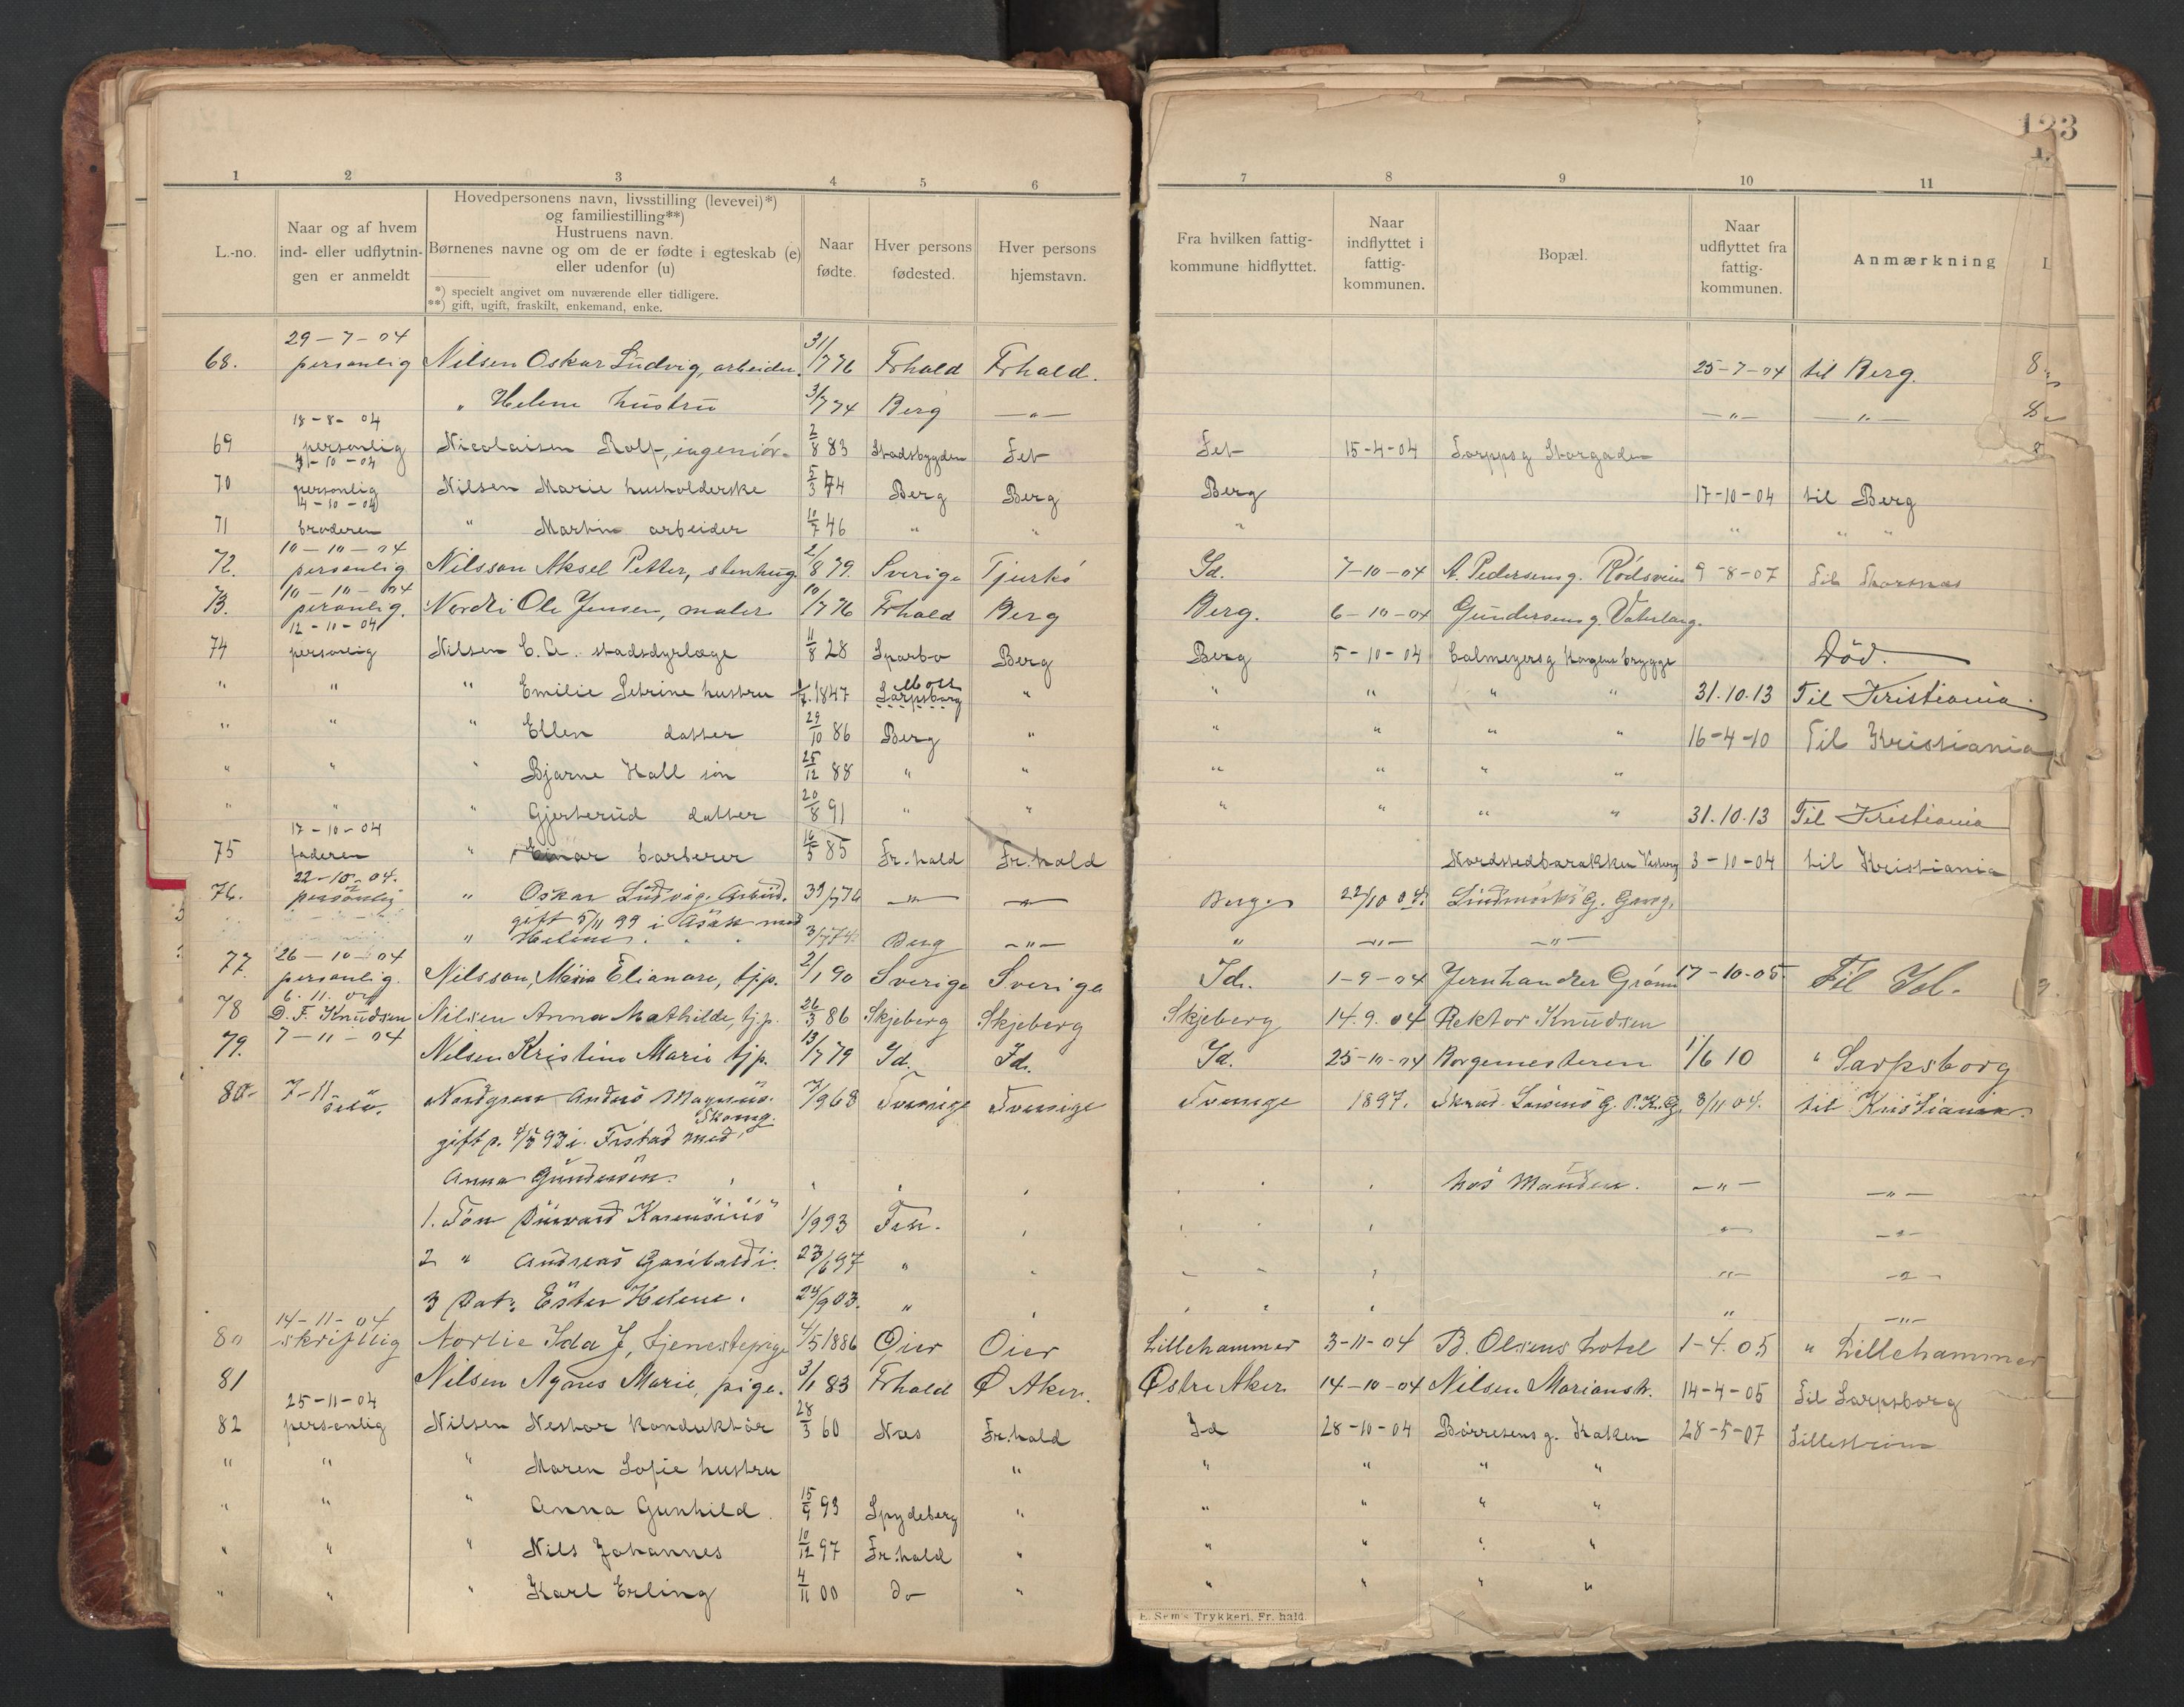 123
1 2 3 4 5 6 7 8 9 10 11
L.-no.
Naar og af hvem ind- eller udflytnin- gen er anmeldt
Hovedpersonens navn, livsstilling (levevei)*)
og familiestilling**)
Hustruens navn.
Børnenes navne og om de er fødte i egteskab (e)
eller udenfor (u)
*) specielt angivet om nuværende eller tidligere.
**) gift, ugift, fraskilt, enkemand, enke.
Naar fødte.
Hver persons fødested.
Hver persons hjemstavn.
Fra hvilken fattig- kommune hidflyttet.
Naar indflyttet i fattig- kommunen.
Bopæl.
Naar udflyttet fra fattig- kommunen.
Anmærkning
29-7-04
68. personlig Nilsen Oskar Ludvig, arbeider. 31/7 76 Frhald Frhald. 25-7-04 til Berg.
" Helene hustru 3/7 74 Berg —"— —"— —"—
18-8-04
69 personlig Nicolaisen Rolf, ingeniør 2/8 83 Stadsbygden Fet Fet 15-4-04 Torpps g Storgaden
70 personlig Nilsen Marie husholderske 5/3 74 Berg Berg Berg 17-10-04 til Berg
14-10-04
71 broderen " Martin arbeider 10/7 46 " " " " " "
10-10-04
72. personlig Nilsson Aksel Petter, stenhug. 2/8 79. Sverige Tjurkö Id. 7-10-04 A. Pedersens g. Rödsveien 9-8-07 Til
10-10-04
73. personlig. Nordli Ole Jensen, maler 10/7 76 Frhald Berg Berg. 6-10-04 Gundersens g. Vaterlang.
12-10-04
74 personlig Nilsen C. A. stadsdyrlæge 11/8 28 Sparbo Berg Berg 5-10-04 Calmeyers g Kongens brygge Död.
" " " Emilie Petrine hustru 1/7. 1847 Sarpsborg Moss " " " " " 31.10.13 Til Kristiania
" " " Ellen datter 29/10 86 Berg " " " " " 16-4-10 Til Kristiania
" " " Bjarne Hall søn 25/12 88 " " " " " "
" " " Gjertrud datter 20/8 91 " " " " " " 31.10.13 Til Kristiania
17-10-04
75 faderen " Einar barberer 16/5 85 Fr.hald Fr.hald Nordstedbarakken 3-10-04 til Kristiania
22-10-04.
76. personlig " Oskar Ludvig. Arbeid. 31/7 76 —"— —"— Berg. 22/10 04. Lindmarks G.
gift 5/11 99 i Asak med
" Helene. 3/7 74. Berg —"— " —"— —"—
26-10-04
77. personlig. Nilsson, Maria Elianore, tjp. 2/1 90 Sverige Sverige Id. 1-9-04 Jernhandler Grönn 17-10-05. Til Id.
6. 11. 04
78 D. F. Knudsen Nilsen Anna Mathilde, tj.p. 26/3 86 Skjeberg Skjeberg Skjeberg 14. 9. 04 Rektor Knudsen
7-11-04
79. Nilsen Kristine Marie tjp. 13/7 79 Id. Id. Id. 25-10-04 Borgemesteren 1/6 10 " Sarpsborg
80 7-11- selv. Nordgren Anders Magnus. 7/9 68 Sverrige Sverrige Sverrige 1897. 8/11 04. til Kristiania.
Skomg.
gift p. 4/5 93 i Frstad med
Anna Gundersen. hos Manden. —"— —"—
1. Søn Karensius 1/9 93 Fsn. " —"—
2 " Andreas Garibaldi. 23/6 97 " —"— —"—
3 Dat: Ester Helene. 24/9 03. " " —"—
14-11-04
80 skriftlig Norlie Ida J, tjenestepige 4/5 1886 Öier Öier Lillehammer 3-11-04 B. Olsens hotel 1-4. 05 " Lillehammer
81 Nilsen Agnes Marie, pige. 3/11 83 Frhald Ø Aker. Østre Aker 14-10-04 Nilsen Marianst. 14-4-05 Til Sarpsborg
25-11-04
82 personlig Nilsen Nestor konduktör 28/3 60 Næs Fr.hald Id 28-10-04 Börresens g. 28-5-07 Lilleström
" " " Maren Sofie hustru " " " " "
" " " Anna Gunhild. 15/9 93 Spydeberg " " " " "
" " " Nils Johannes 10/12 97 Fr.hald " " " " "
" " " Karl Erling 4/11 00 do " " " " "
E. Sem's Trykkeri. Fr. hald.